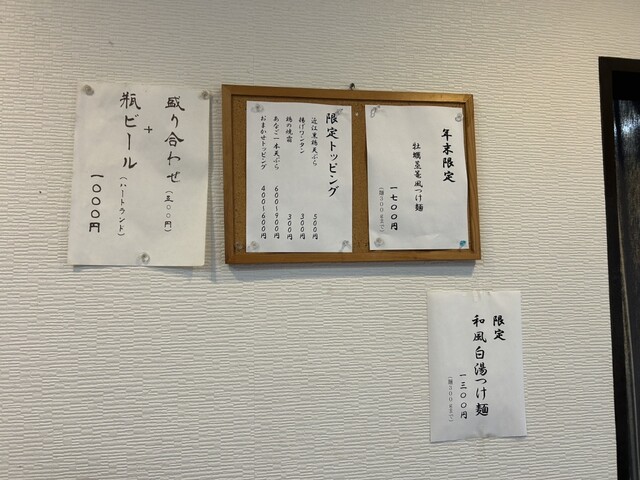 年末限定
牡蠣昆布風つけ麺
一七〇〇円
(麺300gまで)
限定トッピング
近江黒鶏天ぷら 500円
揚げワンタン 300円
鶏の焼霜 300円
あなご一本天ぷら 600~900円
おまかせトッピング 400~600円
盛り合わせ(五〇〇円)
+
瓶ビール(ハートランド)
一〇〇〇円
限定
和風白湯つけ麺
一三〇〇円
(麺300gまで)